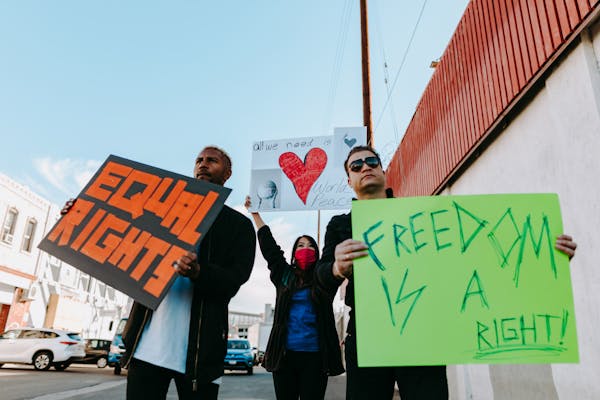 EQUAL
RIGHTS
all we need is
World
Peace
FREEDOM
IS A
RIGHT!